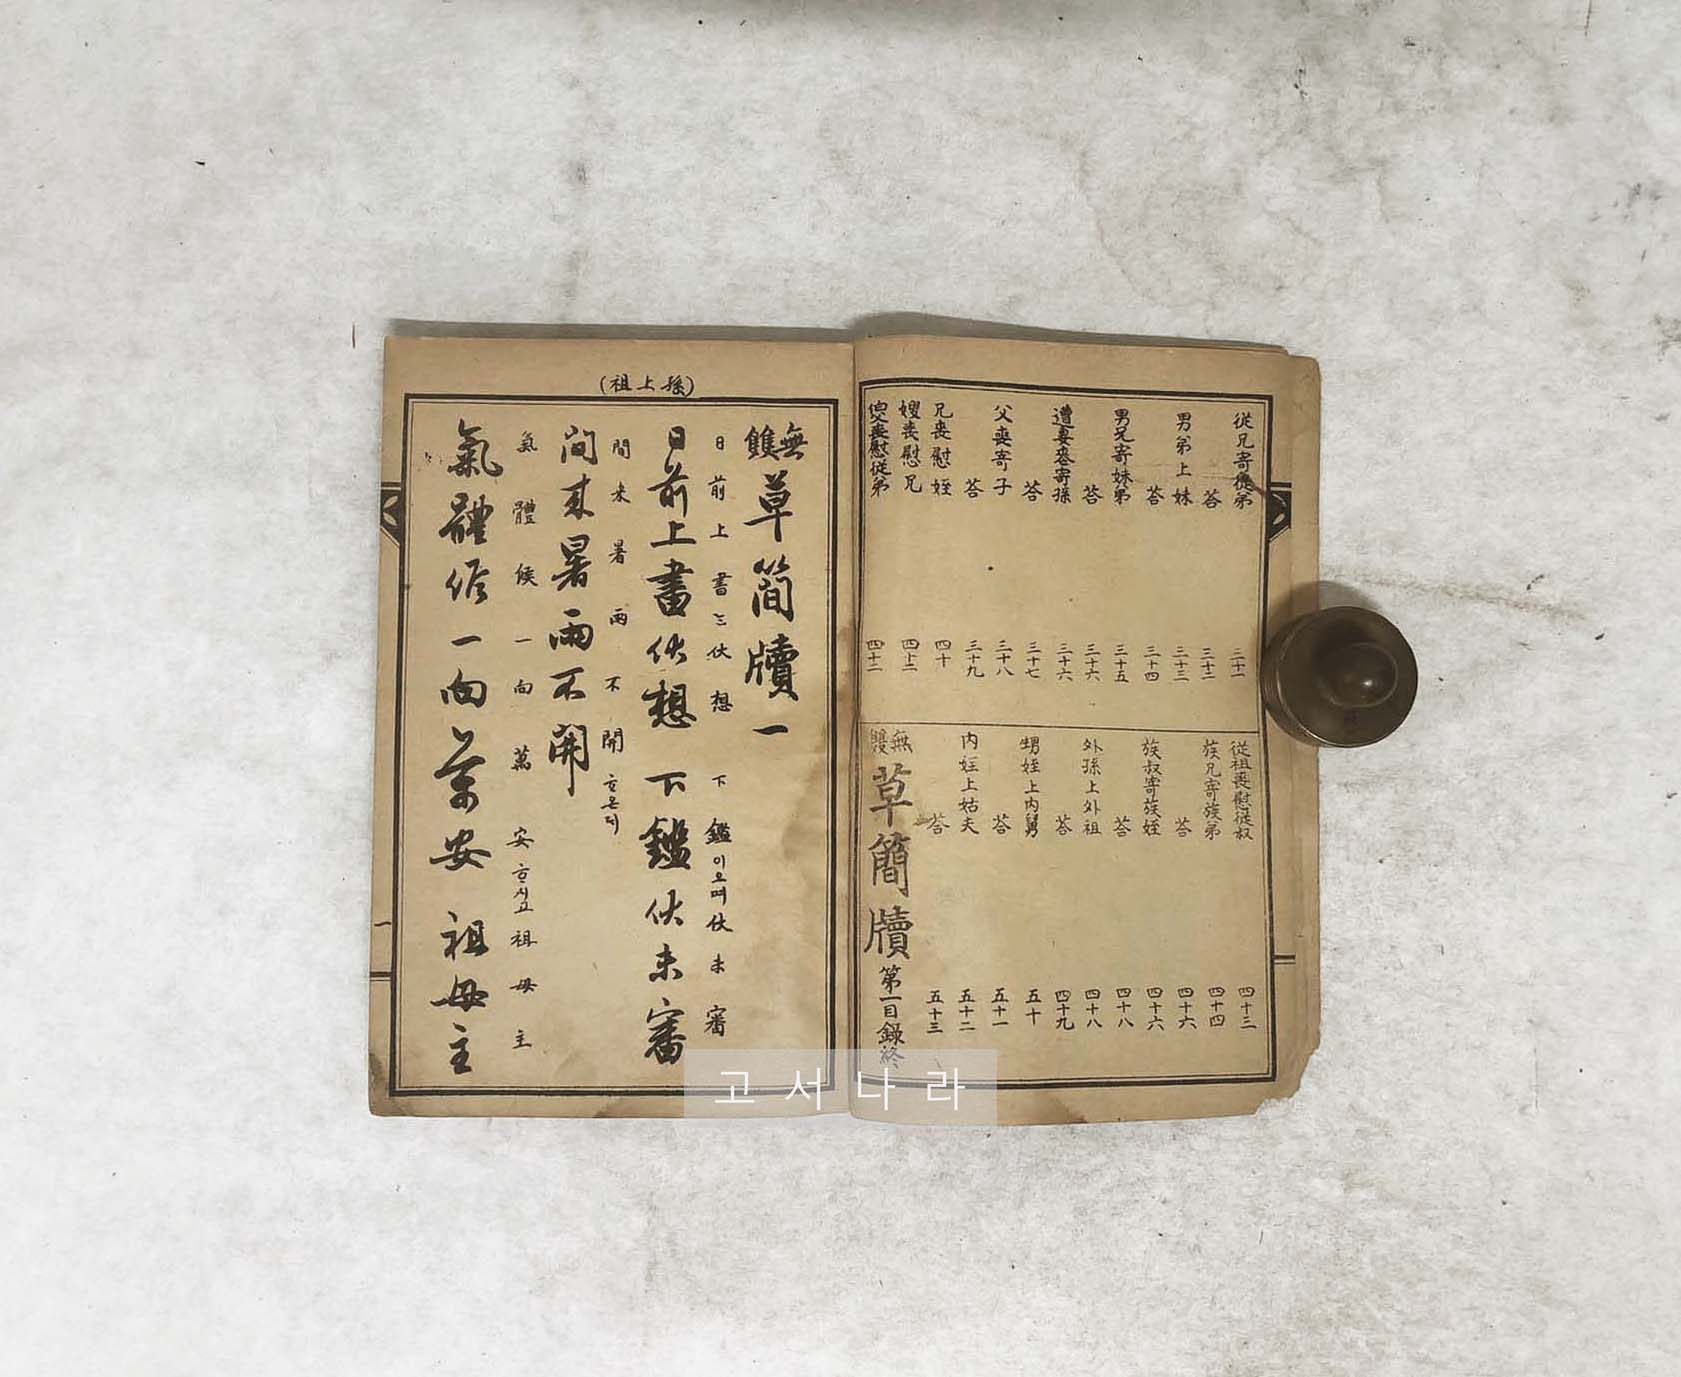 從兄寄從弟 三十一
答 三十二
男弟上妹 三十三
答 三十四
男兄寄妹弟 三十五
答 三十六
遭妻喪寄孫 三十六
答 三十七
父喪寄子 三十八
答 三十九
兄喪慰姪 四十
嫂喪慰兄 四十二
父喪慰從弟 四十二
從祖喪慰從叔 四十三
族兄寄族弟 四十四
答 四十六
族叔寄族姪 四十六
答 四十八
外孫上外祖 四十八
答 四十九
甥姪上內舅 五十
答 五十一
內姪上姑夫 五十二
答 五十三
無雙草簡牘第一目錄終
(孫上祖)
無雙草簡牘一
日前上書는伏想下鑑이오며伏未審
日前上書伏想下鑑伏未審
間來暑雨不開하온데
間來暑雨不開
氣體候一向萬安하시고祖母主
氣體候一向萬安祖母主
一
고서나라